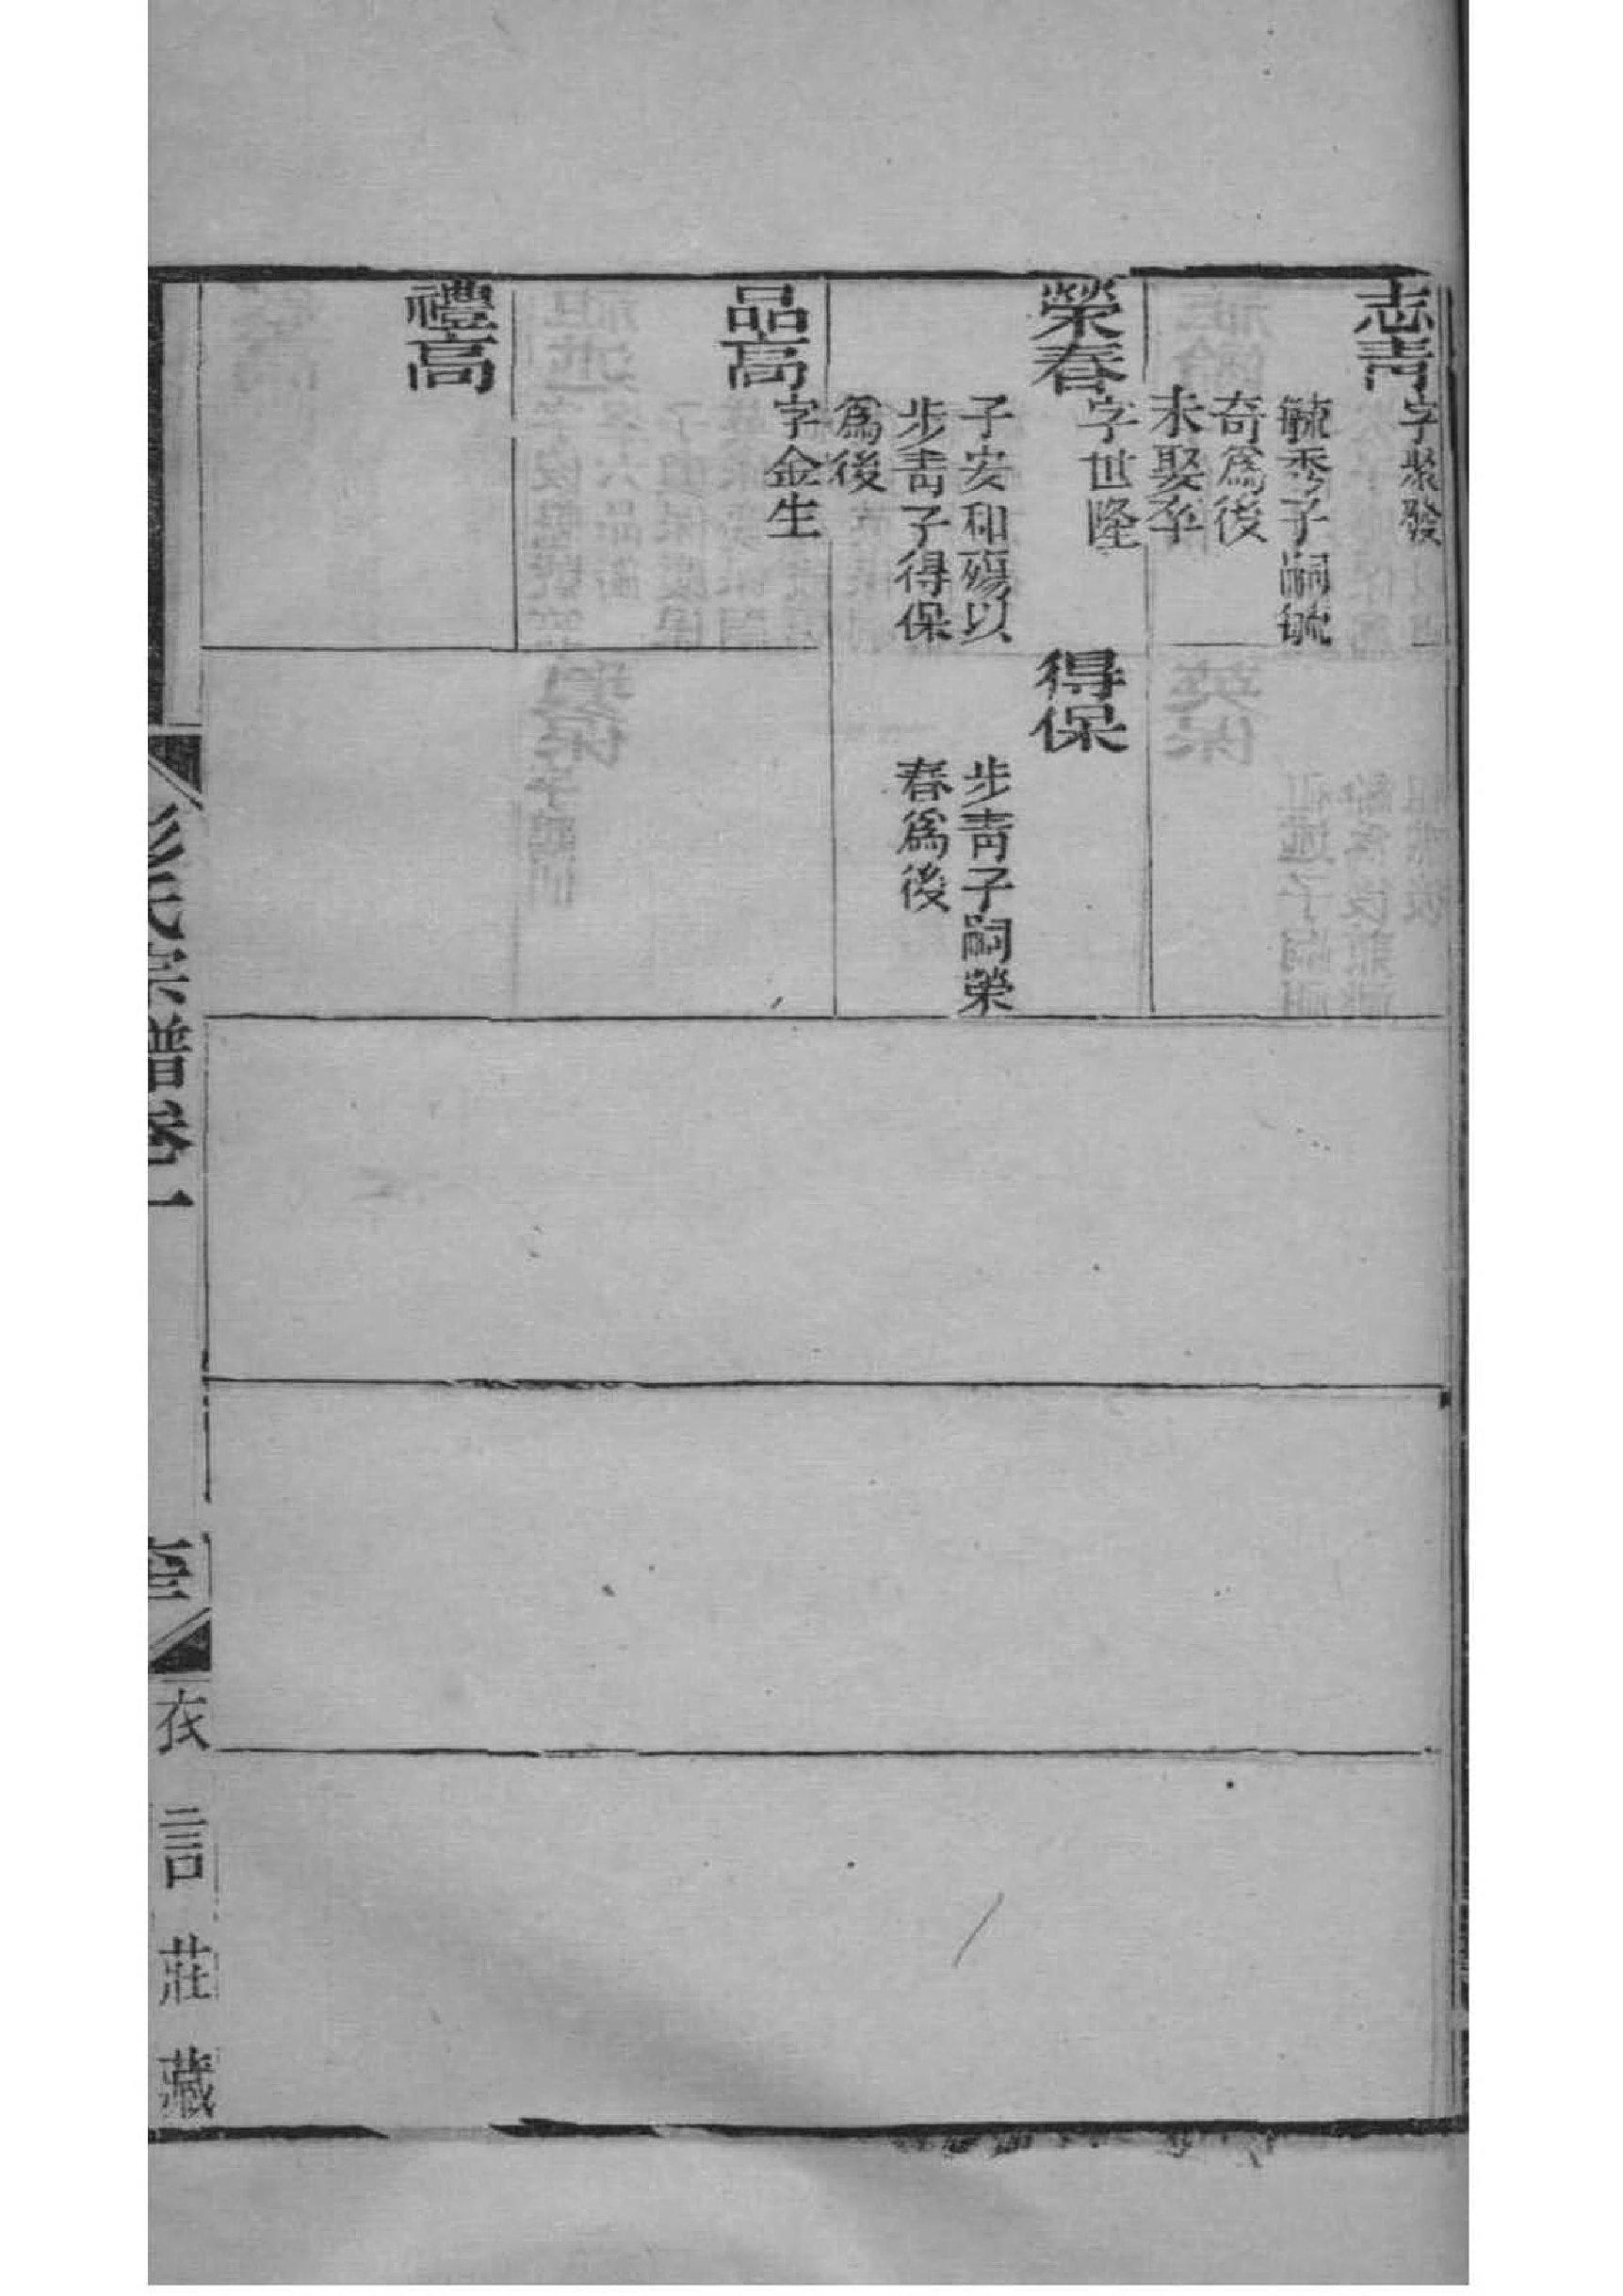 志青
字聚發
毓秀子嗣毓
奇爲後
未娶卒
榮春
字世隆
子安和殤以
步青子得保
爲後
得保
步青子嗣榮
春爲後
品高
字金生
禮高
氏宗譜卷一
衣言莊藏